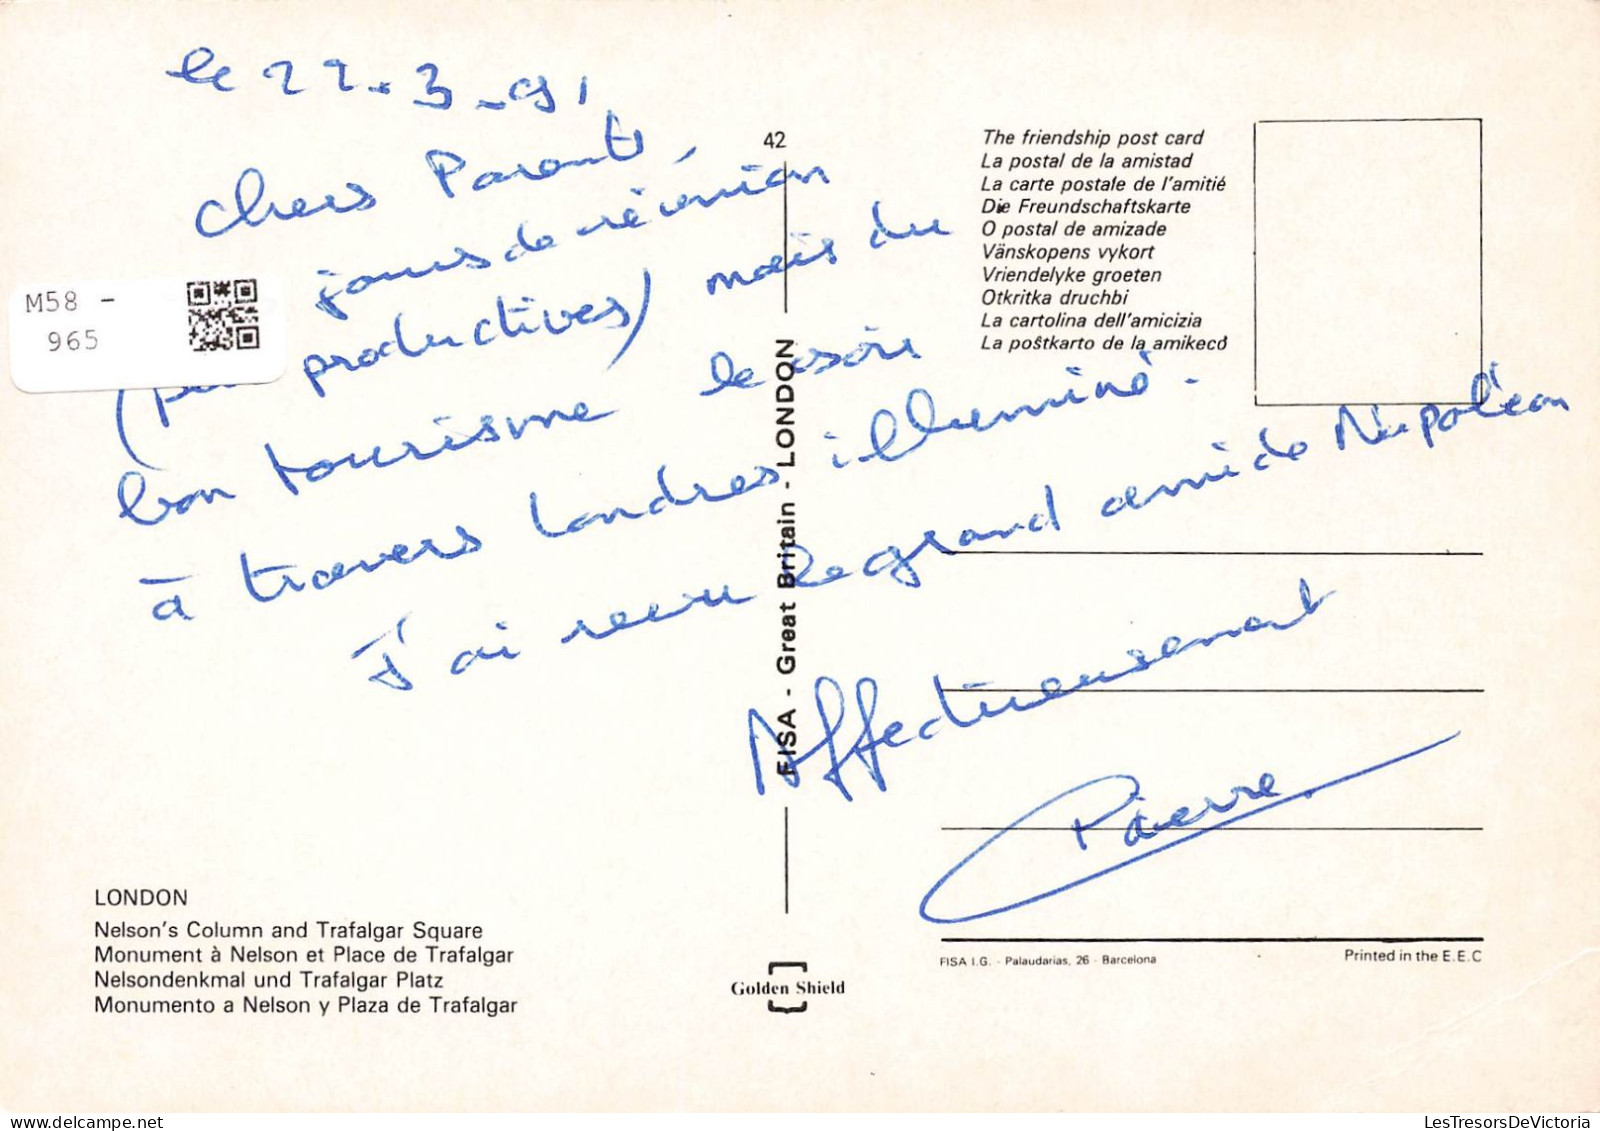 le 22.3.91
Chers Parents,
jours de réunion
(peu productives) mais du
bon tourisme le soir
à travers Londres illuminé.
J'ai revu le grand ami de Napoléon
Affectueusement
Pierre
M58 -
965
42
The friendship post card
La postal de la amistad
La carte postale de l'amitié
Die Freundschaftskarte
O postal de amizade
Vänskopens vykort
Vriendelyke groeten
Otkritka druchbi
La cartolina dell'amicizia
La poŝtkarto de la amikecó
FISA - Great Britain - LONDON
LONDON
Nelson's Column and Trafalgar Square
Monument à Nelson et Place de Trafalgar
Nelsondenkmal und Trafalgar Platz
Monumento a Nelson y Plaza de Trafalgar
Golden Shield
FISA I.G. - Palaudarias, 26 - Barcelona
Printed in the E.E.C
LesTresorsDeVictoria